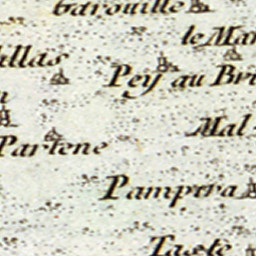 barouille
le Mar
ullas
Pey au Bru
Mal
Partene
Pampera
Taste